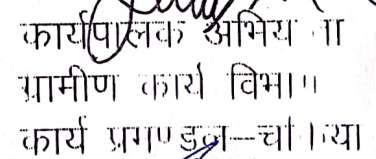 कार्यपालक अभियंता
ग्रामीण कार्य विभाग
कार्य प्रमण्डल-चौ